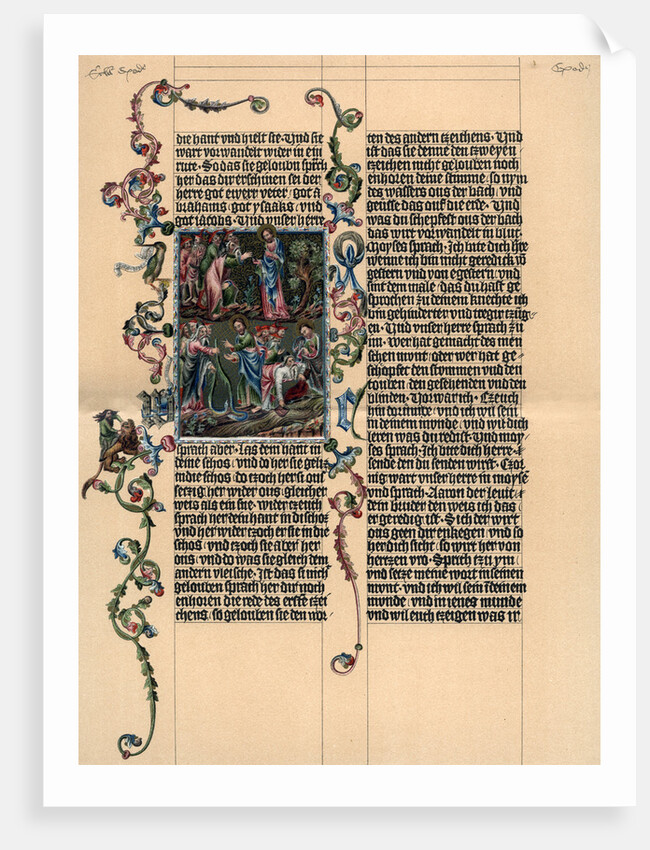 die hant vnd hielt sie · Und sie
wart vorwandelt wider in ein
rute · So das sie gelouben sprich
her das dir erschinen sei der
herre got ewer veter / got a
brahams / got ysaaks / vnd
got iacobs · Und vnser herre
sprach aber · Las dein hant in
deine schos / vnd do her sie
in die schos / do tzoch her si ous
setzig her wider ous gleicher
weis als ein sne · wider tzeuch
sprach her dein hant in di schoz
vnd her wider tzoch er sie in die
schos / vnd tzoch sie aber her
ous / vnd do was sie gleich dem
andern vleische · Ist das si nicht
gelouben sprach her dir noch
enhoren die rede des ersten tzei
chens / so gelouben sie den wor
ten des andern tzeichens · Und
ist das sie denne den tzweyen
tzeichen nicht gelouben noch
enhoren deine stimme / so nym
des wassers ous der bach / vnd
geusse das ouf die erde · Und
was du schepfest ous der bach
das wirt vorwandelt in blut ·
Moyses sprach · Ich bite dich h're
wenne ich bin nicht geredick vo
gestern vnd von egestern / vnd
sint dem male / das du hast ge
sprochen zu deinem knechte ich
bin gehinderter vnd tregir tzu
gen · Und vnser herre sprach tzu
im · Wer hat gemacht des men
schen munt / oder wer hat ge
schopfet den stummen vnd den
touben / den gesehenden vnd den
blinden · Vorwar ich · Tzeuch
hin dorumbe / vnd ich wil sein
in deinem munde / vnd wil dich
leren was du redist · Und moy
ses sprach · Ich bite dich herre ·
sende den du senden wirst · Tzor
nig wart vnser herre in moysē
vnd sprach · Aaron der leuit
dein bruder den weis ich das
er geredig ist · Sich der wirt
ous geen dir enkegen / vnd so
her dich sicht / so wirt her von
hertzen vro · Sprich tzu ym
vnd setze meine wort in seinen
munt / vnd ich wil sein in deinem
munde / vnd in ienes munde
vnd wil euch tzeigen was ir